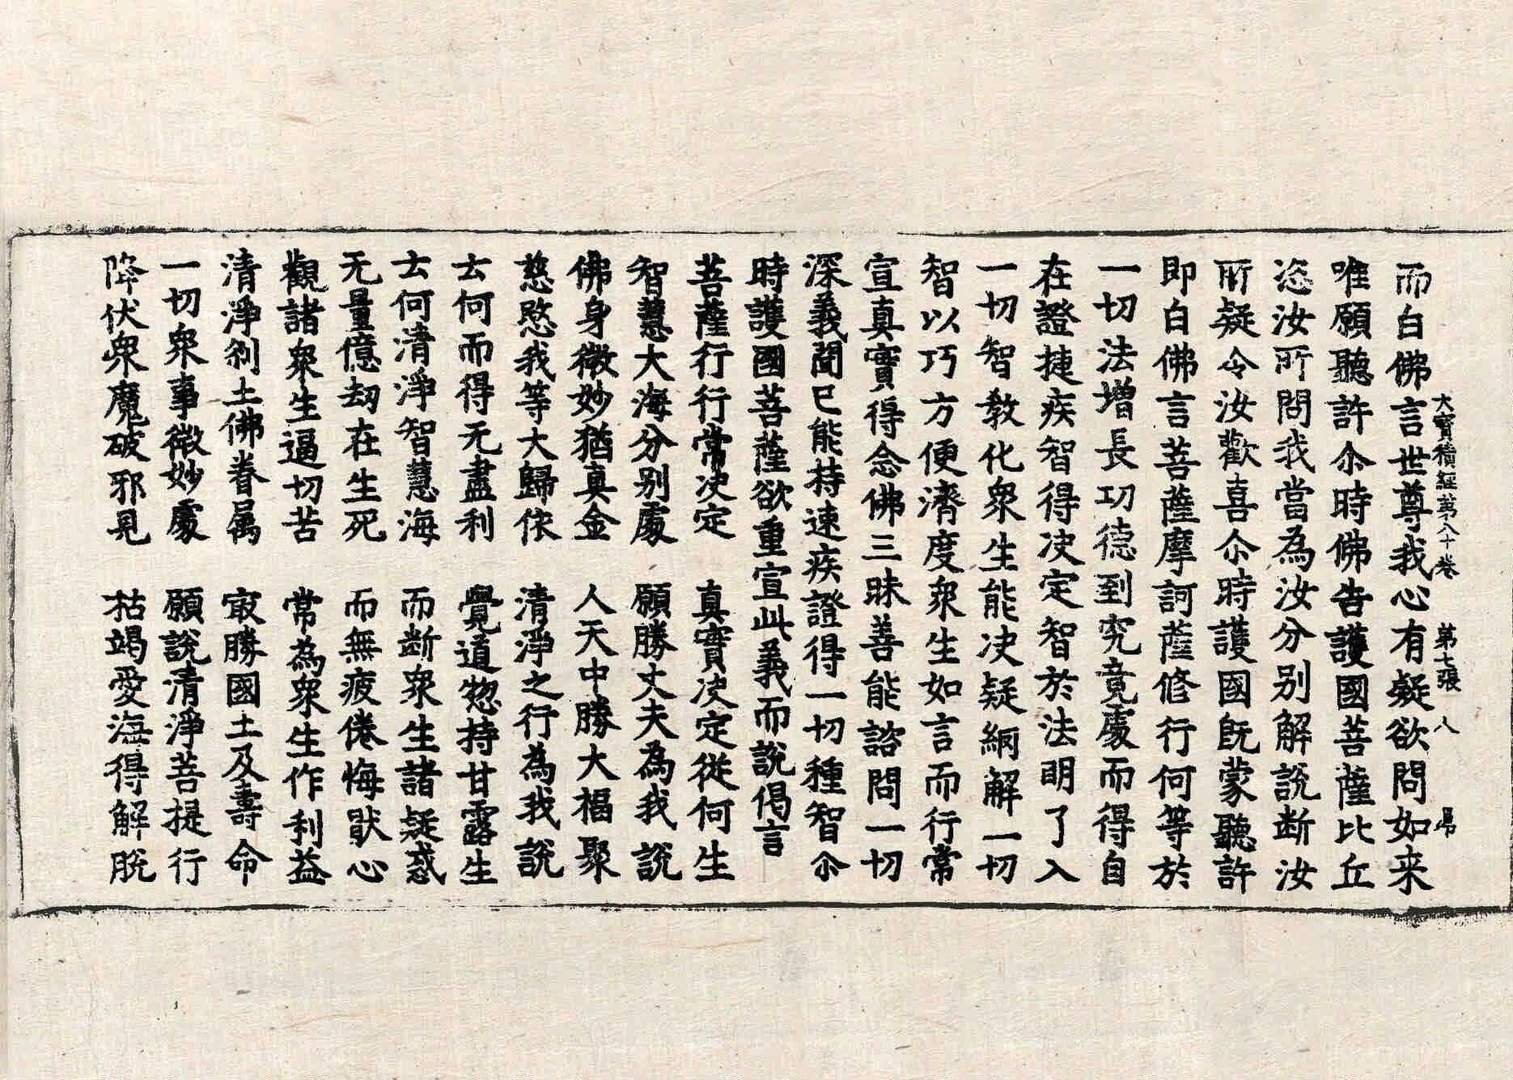 大寶積經第八十卷　第七張　八
而白佛言世尊我心有疑欲問如来
唯願聽許尒時佛告護國菩薩比丘
恣汝所問我當為汝分別解說断汝
所疑令汝歡喜尒時護國既蒙聽許
即白佛言菩薩摩訶薩修行何等於
一切法增長功德到究竟處而得自
在證捷疾智得决定智於法明了入
一切智教化衆生能决疑網解一切
智以巧方便濟度衆生如言而行常
宣真實得念佛三昧善能諮問一切
深義聞已能持速疾證得一切種智尒
時護國菩薩欲重宣此義而說偈言
菩薩行行常决定　真實决定從何生
智慧大海分别處　願勝丈夫為我說
佛身微妙猶真金　人天中勝大福聚
慈愍我等大歸依　清淨之行為我說
云何而得无盡利　覺道惣持甘露生
云何清淨智慧海　而断衆生諸疑惑
无量億劫在生死　而無疲倦悔猒心
觀諸衆生逼切苦　常為衆生作利益
清淨刹土佛眷属　㝡勝國土及壽命
一切衆事微妙處　願說清淨菩提行
降伏衆魔破邪見　枯竭愛海得解脫